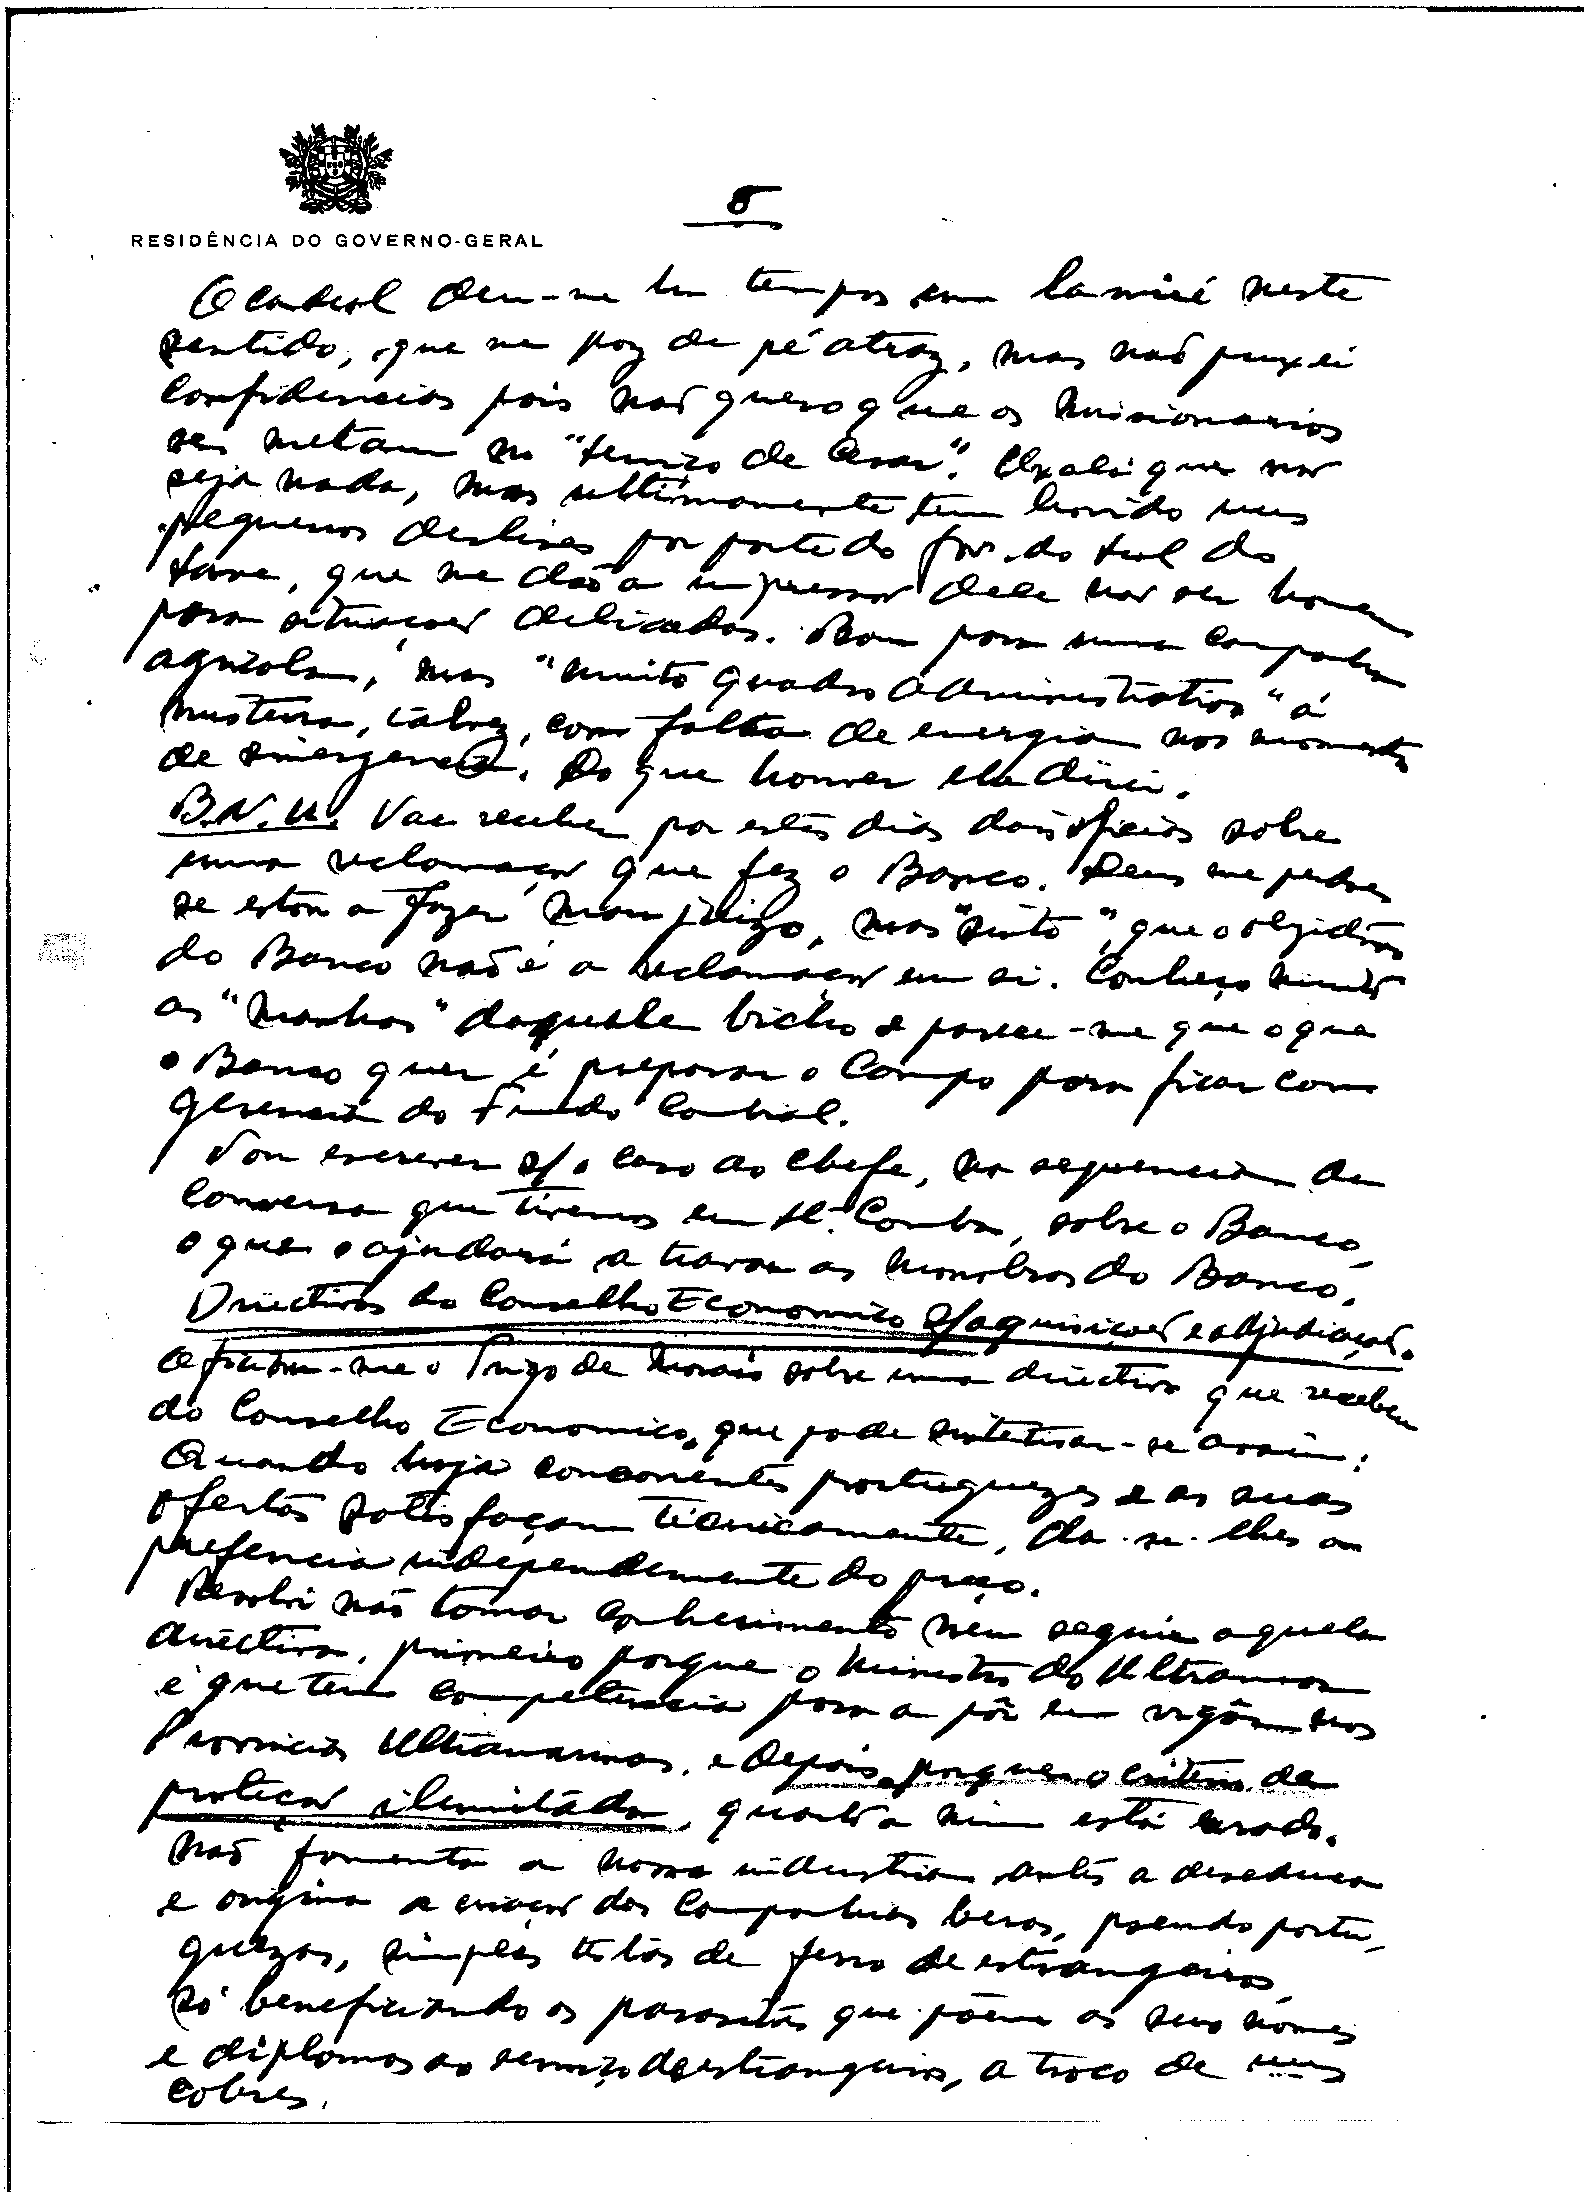 RESIDÊNCIA DO GOVERNO-GERAL
O cardeal deu-me há tempos um lamiré neste
sentido, que me poz de pé atraz, mas não puxei
confidencias pois não quero que os missionarios
se metam no "serviço de Cesar". Oxalá que não
seja nada, mas ultimamente tem havido uns
pequenos deslises por parte do Gov. do Sul do
Save, que me dão a impressão dele não ser homem
para situações delicadas. Bom para uma campanha
agricola, mas "muito quadro administrativo" á
mistura, talvez, com falta de energia nos momentos
de emergencia. Do que houver ele dirá.
B.N.U. Vae receber por estes dias dois oficios sobre
uma reclamação que fez o Banco. Deus me perdoe
se estou a fazer mau juizo, mas "sinto", que o objectivo
do Banco não é a reclamação em si. Conheço muito
as "manhas" daquele bicho e parece-me que o que
o Banco quer é preparar o campo para ficar com
gerencia do Fundo Cambial.
Vou escrever s/ o caso ao chefe, na sequencia da
conversa que tivemos em Stª. Comba, sobre o Banco,
o que o ajudará a travar as manobras do Banco.
Directivas do Conselho Economico s/ aquisições e adjudicações.
Oficiou-me o Trigo de Morais sobre uma directiva que recebeu
do Conselho Economico, que pode sintetisar-se assim:
Quando haja concorrentes portuguezes e as suas
ofertas satisfaçam técnicamente, dá-se-lhes a
prefencia independemente do preço.
Resolvi não tomar conhecimento nem seguir aquela
directiva, primeiro porque o Ministro do Ultramar
é que tem competencia para a pôr em vigôr nas
Provincias Ultramarinas, e depois porque o criterio de
proteção ilimitada, quanto a mim está errado.
Não fomenta a nossa industria antes a deseduca
e origina a criação das Companhias beras, pseudo portu-
guezas, simples testas de ferro de estrangeiros,
só beneficiando os parasitas que põem os seus nomes
e diplomas ao serviço de estrangeiros, a troco de uns
cobres.